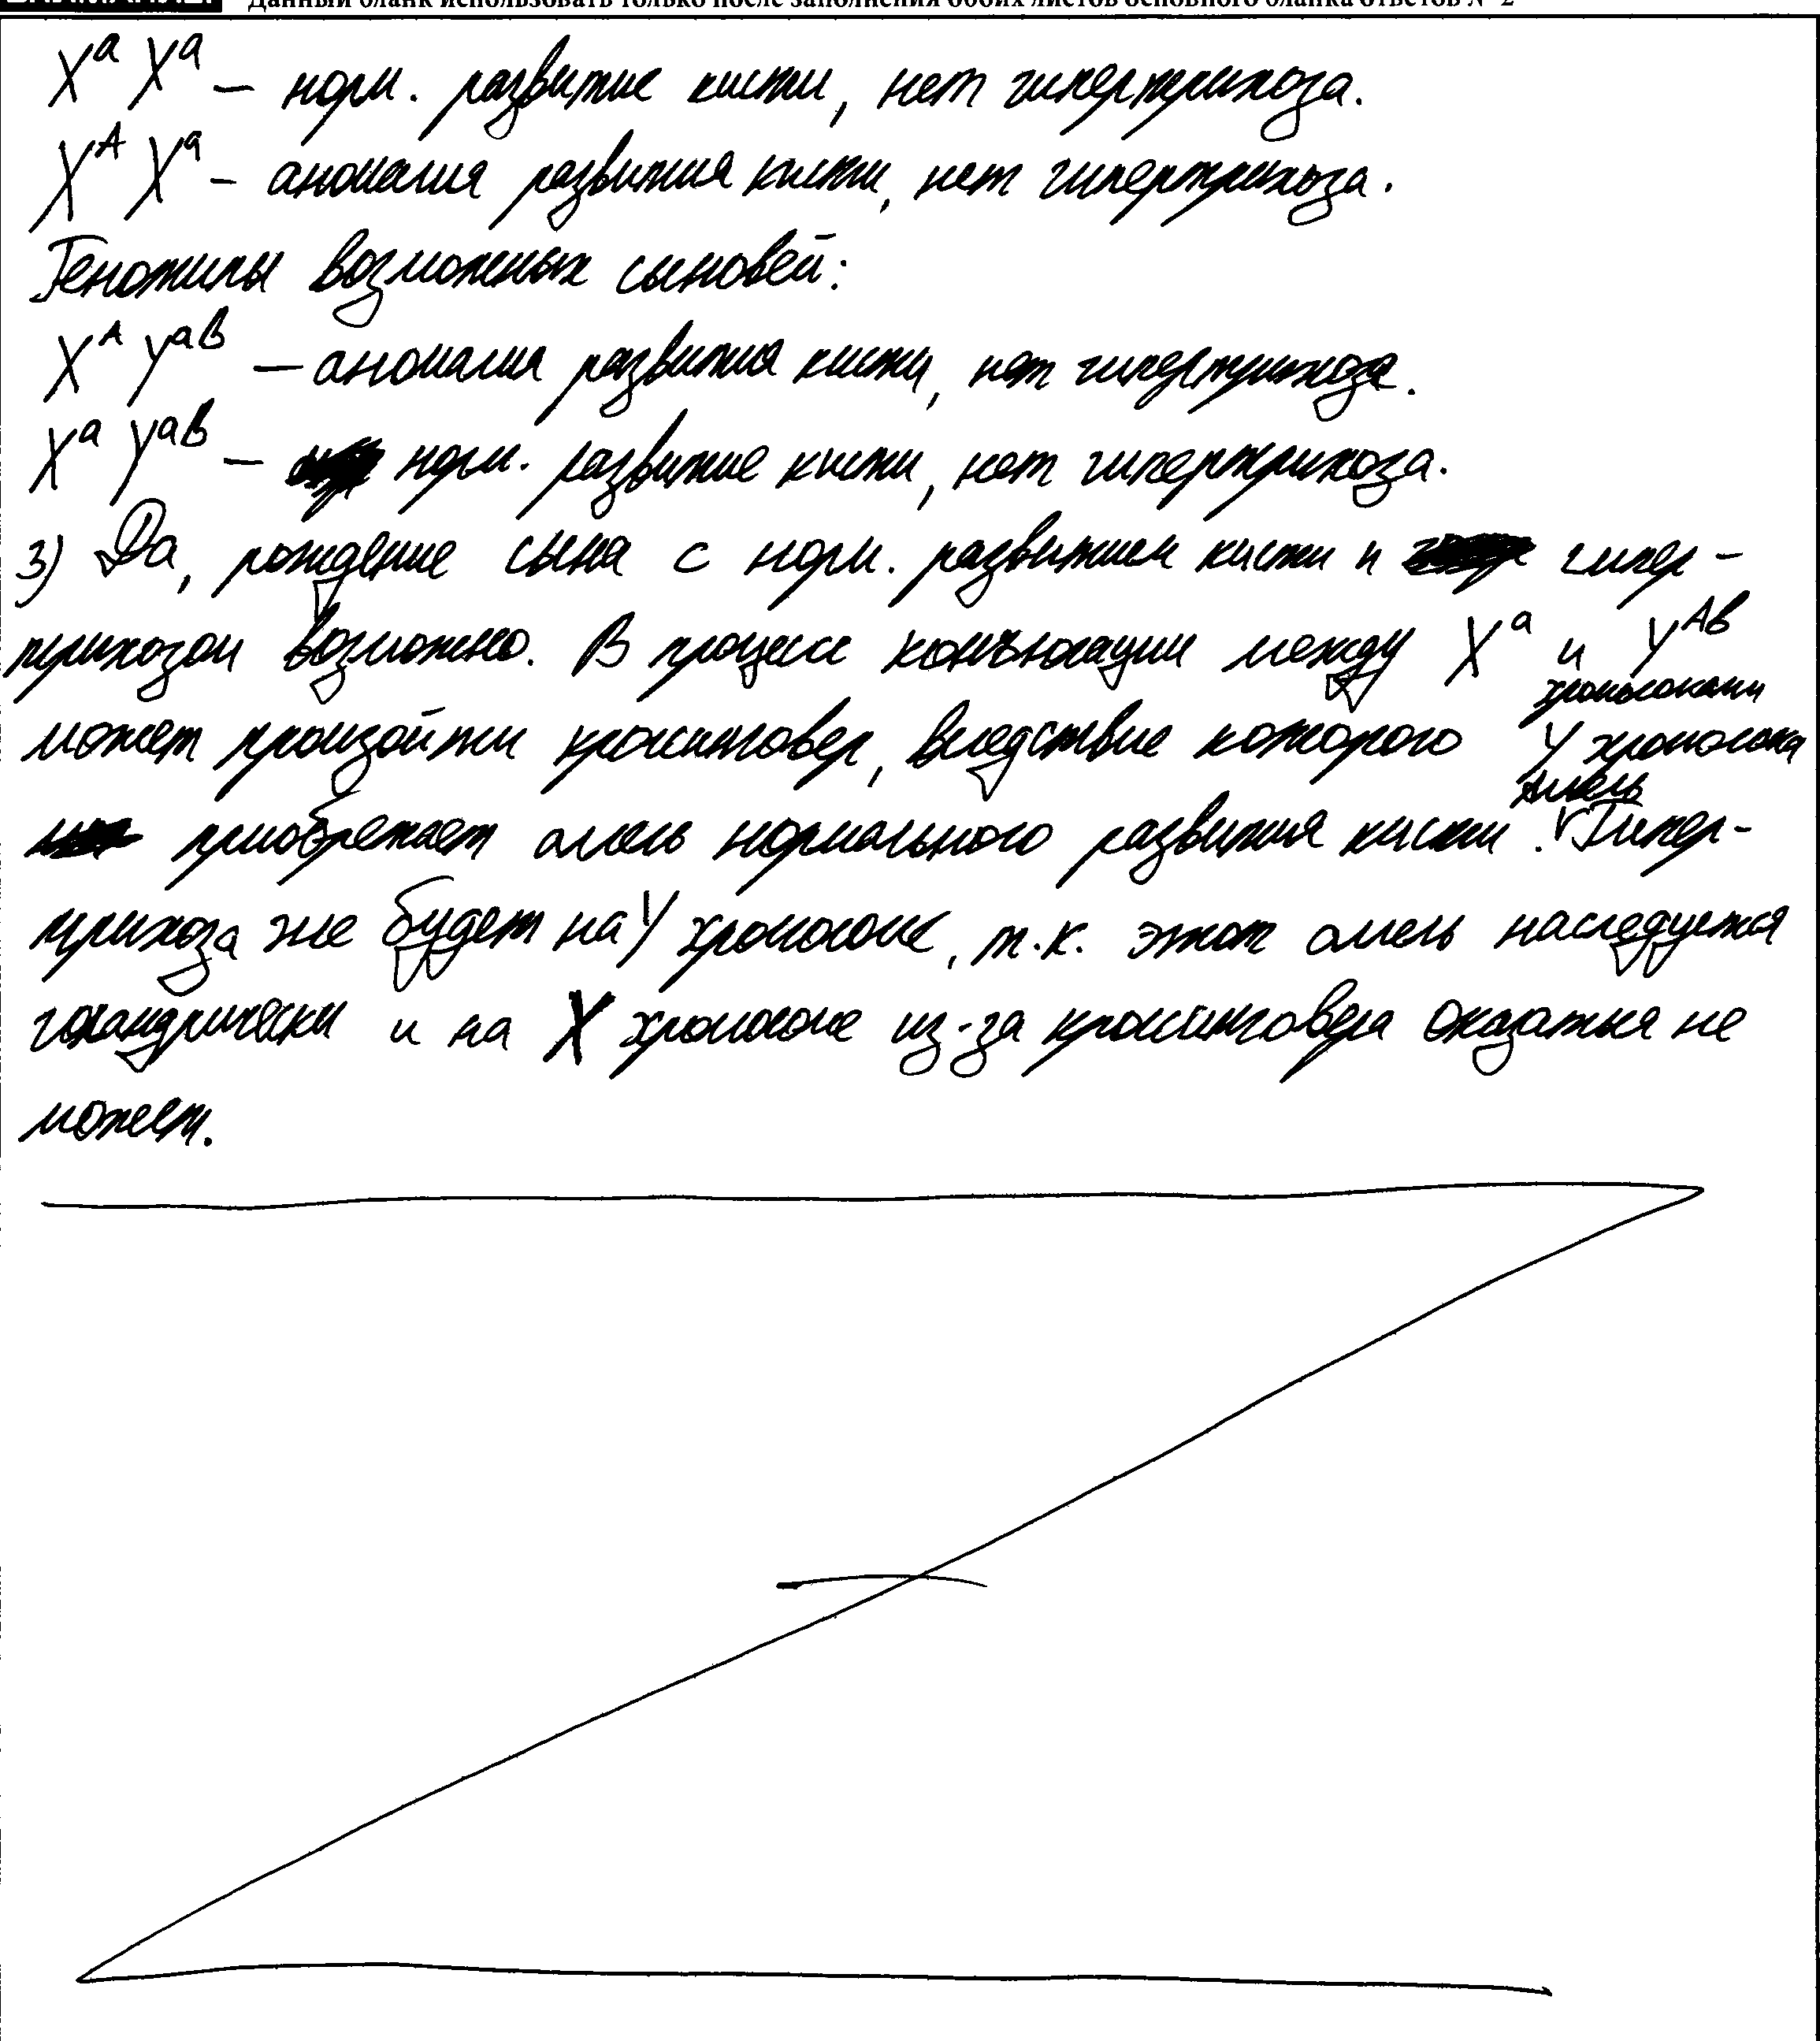 Данный бланк использовать только после заполнения обоих листов основного бланка ответов № 2
X^a X^a – норм. развитие кисти, нет гипертрихоза.
X^A X^a – аномалия развития кисти, нет гипертрихоза.
Генотипы возможных сыновей:
X^A Y^ab – аномалия развития кисти, нет гипертрихоза.
X^a Y^ab – норм. развитие кисти, нет гипертрихоза.
3) Да, рождение сына с норм. развитием кисти и гипер-
трихозом возможно. В процессе конъюгации между X^a и Y^Ab
хромосомами
может произойти кроссинговер, вследствие которого Y хромосома
аллель
приобретает аллель нормального развития кисти. Гипер-
трихоза же будет на Y хромосоме, т.к. этот аллель наследуется
голандрически и на X хромосоме из-за кроссинговера оказаться не
может.